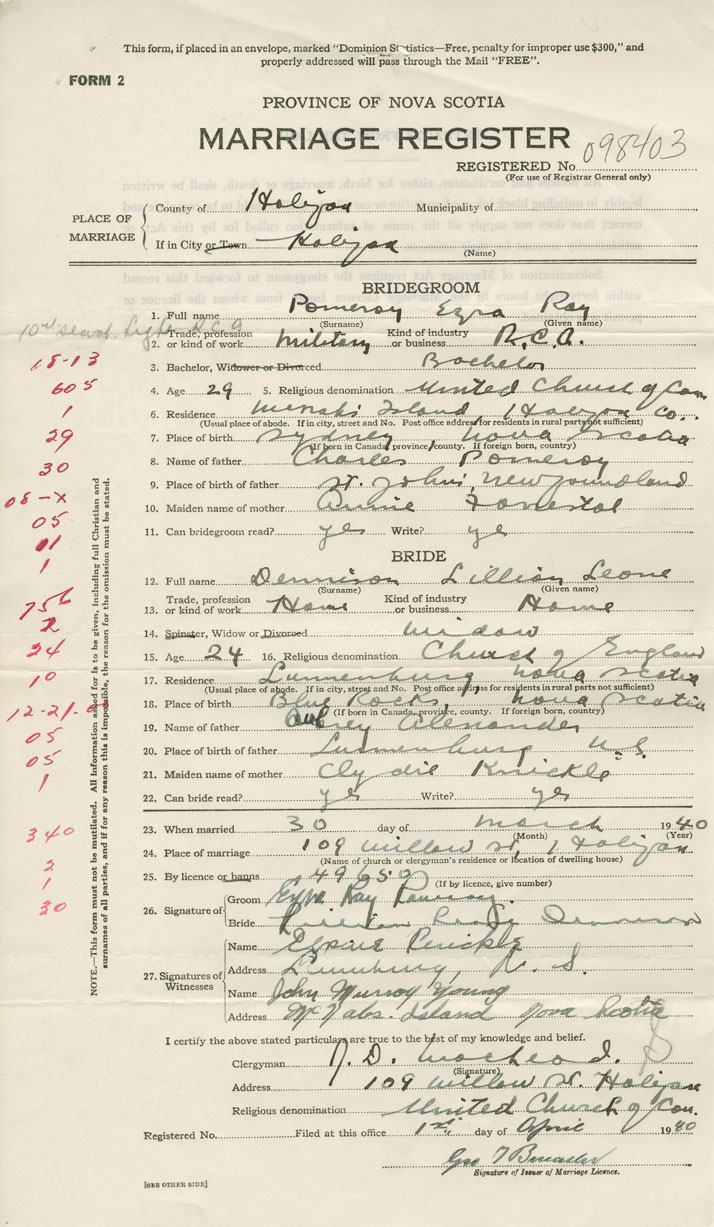 This form, if placed in an envelope, marked "Dominion Statistics—Free, penalty for improper use $300," and
properly addressed will pass through the Mail "FREE".
FORM 2
PROVINCE OF NOVA SCOTIA
MARRIAGE REGISTER
REGISTERED No. 098403
(For use of Registrar General only)
PLACE OF MARRIAGE
County of Halifax Municipality of
If in City or Town Halifax
(Name)
BRIDEGROOM
1. Full name Pomeroy Ezra Ray
(Surname) (Given name)
2. Trade, profession or kind of work Military Kind of industry or business R.C.A.
3. Bachelor, Widower or Divorced Bachelor
4. Age 29 5. Religious denomination United Church of Can
6. Residence McNabs Island Halifax Co.
(Usual place of abode. If in city, street and No. Post office address for residents in rural parts not sufficient)
7. Place of birth Sydney Nova Scotia
(If born in Canada, province, county. If foreign born, country)
8. Name of father Charles Pomeroy
9. Place of birth of father St. Johns, Newfoundland
10. Maiden name of mother Annie
11. Can bridegroom read? yes Write? yes
BRIDE
12. Full name Dennison Lillian Leone
(Surname) (Given name)
13. Trade, profession or kind of work Home Kind of industry or business Home
14. Spinster, Widow or Divorced Widow
15. Age 24 16. Religious denomination Church of England
17. Residence Lunenburg Nova Scotia
(Usual place of abode. If in city, street and No. Post office address for residents in rural parts not sufficient)
18. Place of birth Blue Rocks, Nova Scotia
(If born in Canada, province, county. If foreign born, country)
19. Name of father Aubrey Alexander
20. Place of birth of father Lunenburg N.S.
21. Maiden name of mother Clydie Knickle
22. Can bride read? yes Write? yes
23. When married 30 day of March 1940
(Month) (Year)
24. Place of marriage 109 Willow St, Halifax
(Name of church or clergyman's residence or location of dwelling house)
25. By licence or banns 49650
(If by licence, give number)
26. Signature of
Groom Ezra Ray Pomeroy
Bride Dennison
27. Signatures of Witnesses
Name
Address Lunenburg, N. S.
Name John Murray Young
Address McNabs Island Nova Scotia
I certify the above stated particulars are true to the best of my knowledge and belief.
Clergyman
(Signature)
Address 109 Willow St. Halifax
Religious denomination United Church of Can.
Registered No. Filed at this office 1st day of April 1940
Signature of Issuer of Marriage Licence.
[SEE OTHER SIDE]
NOTE.—This form must not be mutilated. All information asked for is to be given, including full Christian and
surnames of all parties, and if for any reason this is impossible, the reason for the omission must be stated.
18-13
605
1
29
30
08-X
05
11
1
756
2
24
10
12-21-
05
05
1
340
2
1
30